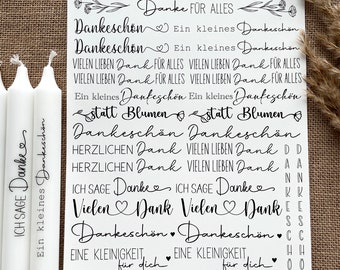 Danke FÜR ALLES
Dankeschön Ein kleines Dankeschön
Dankeschön Ein kleines Dankeschön
VIELEN LIEBEN Dank FÜR ALLES VIELEN LIEBEN Dank FÜR ALLES
VIELEN LIEBEN Dank FÜR ALLES VIELEN LIEBEN Dank FÜR ALLES
Ein kleines Dankeschön Ein kleines Dankeschön
statt Blumen statt Blumen
Dankeschön Dankeschön
HERZLICHEN Dank VIELEN LIEBEN Dank
HERZLICHEN Dank VIELEN LIEBEN Dank
ICH SAGE Danke ICH SAGE Danke
Vielen Dank Vielen Dank
Dankeschön Dankeschön
EINE KLEINIGKEIT für dich EINE KLEINIGKEIT für dich
DANKESCHÖ
DANKESCHÖ
ICH SAGE Danke
Ein kleines Dankeschön